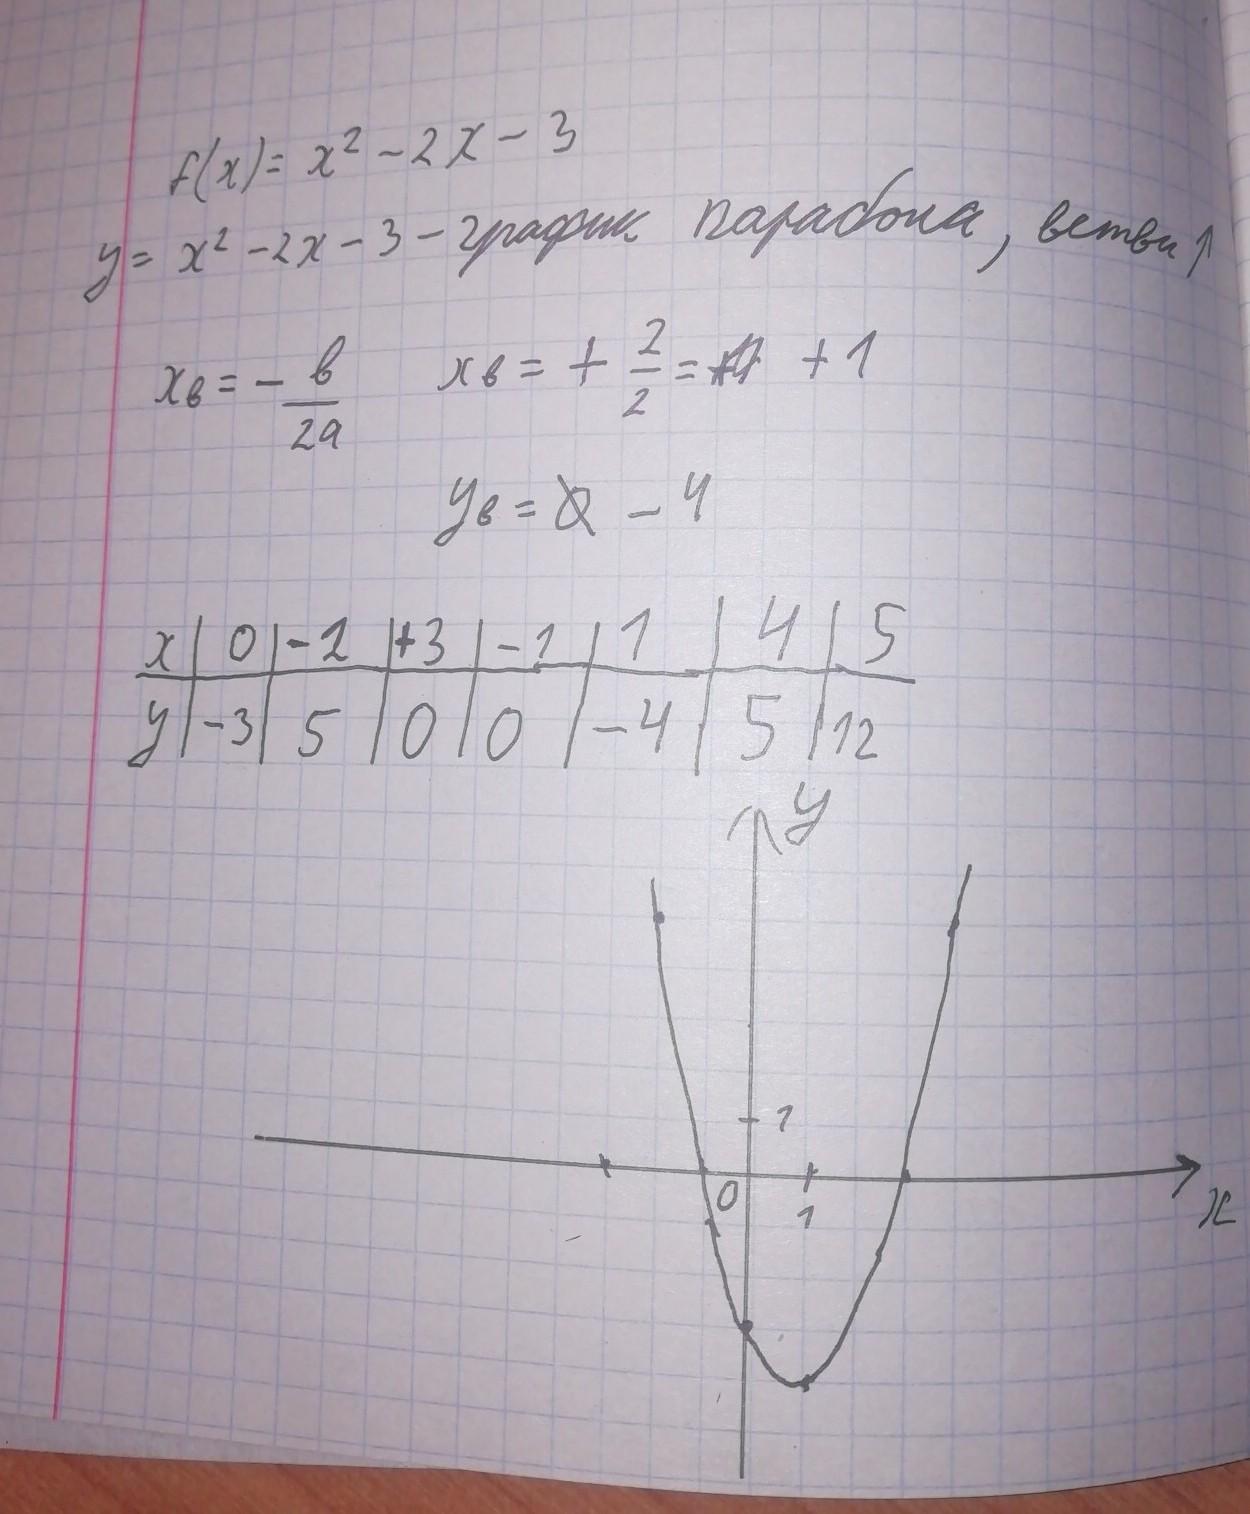 f(x) = x² - 2x - 3
y = x² - 2x - 3 - график парабола, ветви ↑
xв = - в/2a xв = + 2/2 = + 1
yв = - 4
x | 0 | -2 | +3 | -1 | 1 | 4 | 5
y | -3 | 5 | 0 | 0 | -4 | 5 | 12
y
1
0
1
x